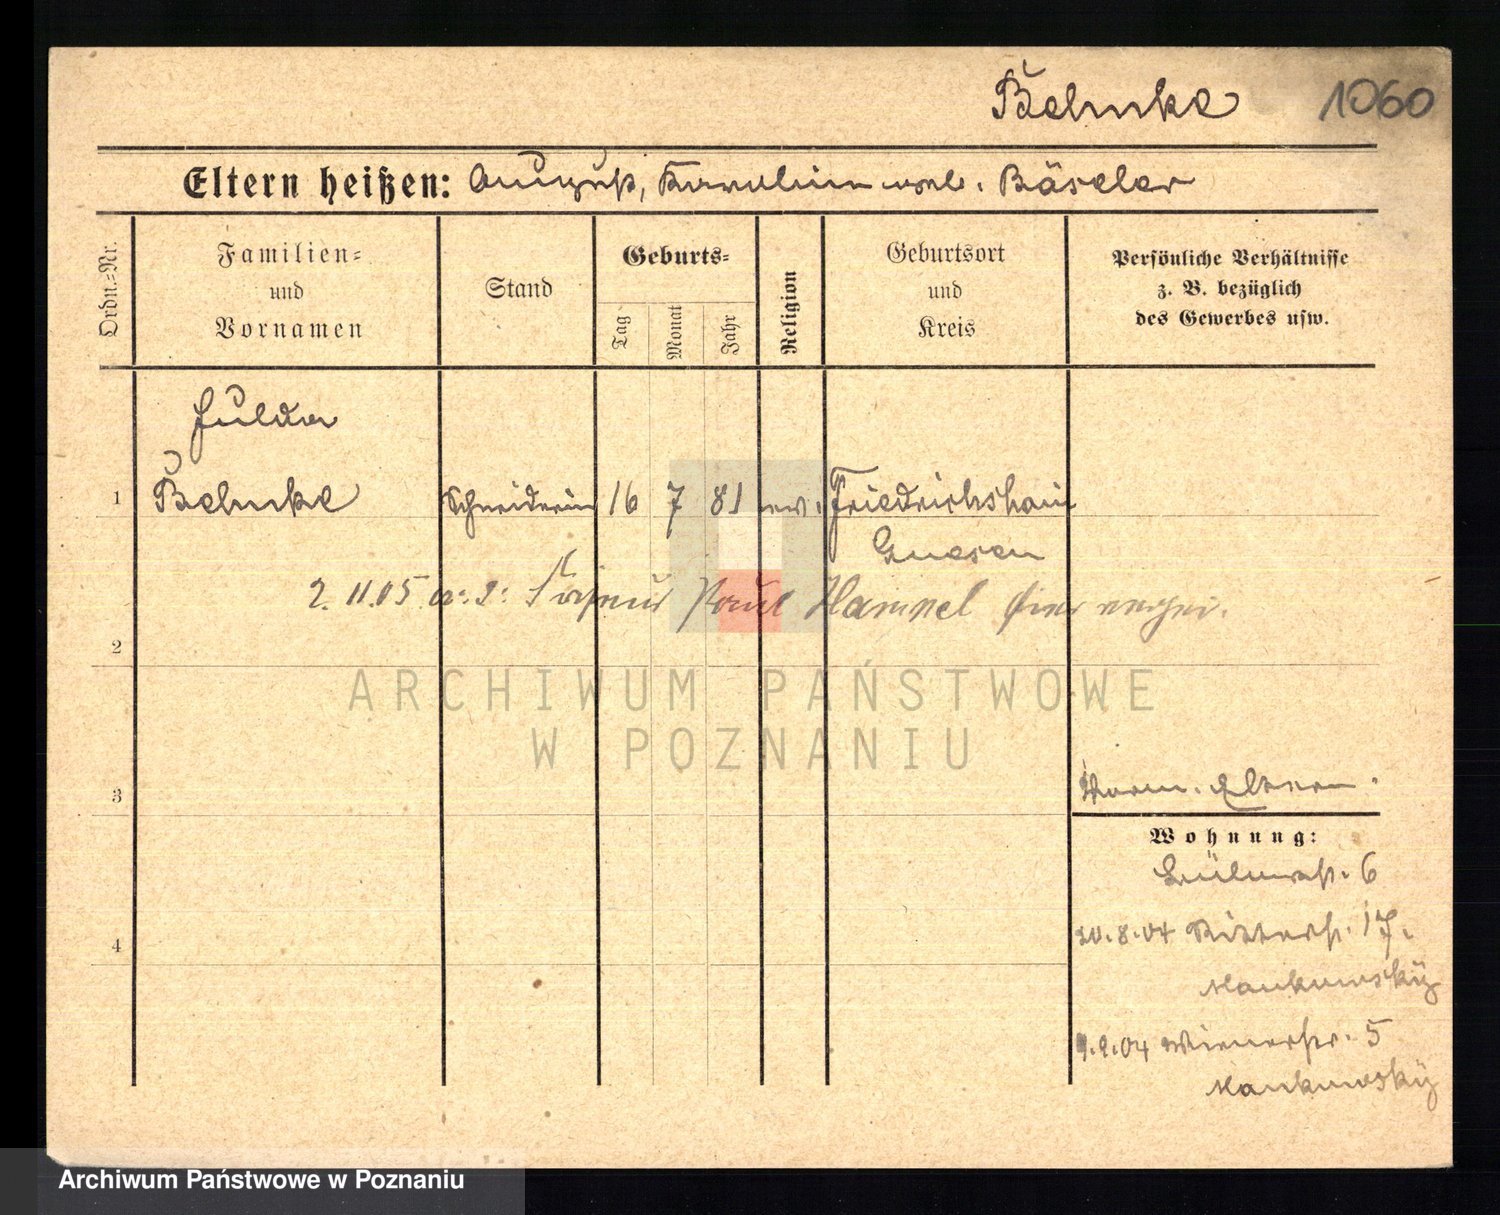 Behnke 1060
Eltern heißen: August, Karoline geb. Bäseler
Ordn.-Nr.
Familien-
und
Vornamen
Stand
Geburts-
Tag
Monat
Jahr
Religion
Geburtsort
und
Kreis
Persönliche Verhältnisse
z. B. bezüglich
des Gewerbes usw.
Hulda
1 Behnke Schneiderin 16 7 81 ev. Friedrichshain
Gnesen
2.11.05 Paul Hampel hier
2
ARCHIWUM PAŃSTWOWE
W POZNANIU
3
Eltern.
Wohnung:
6
20.8.04 Ritterstr. 17.
4
Mankowsky
9.9.04 Wienerstr. 5
Mankowsky
Archiwum Państwowe w Poznaniu